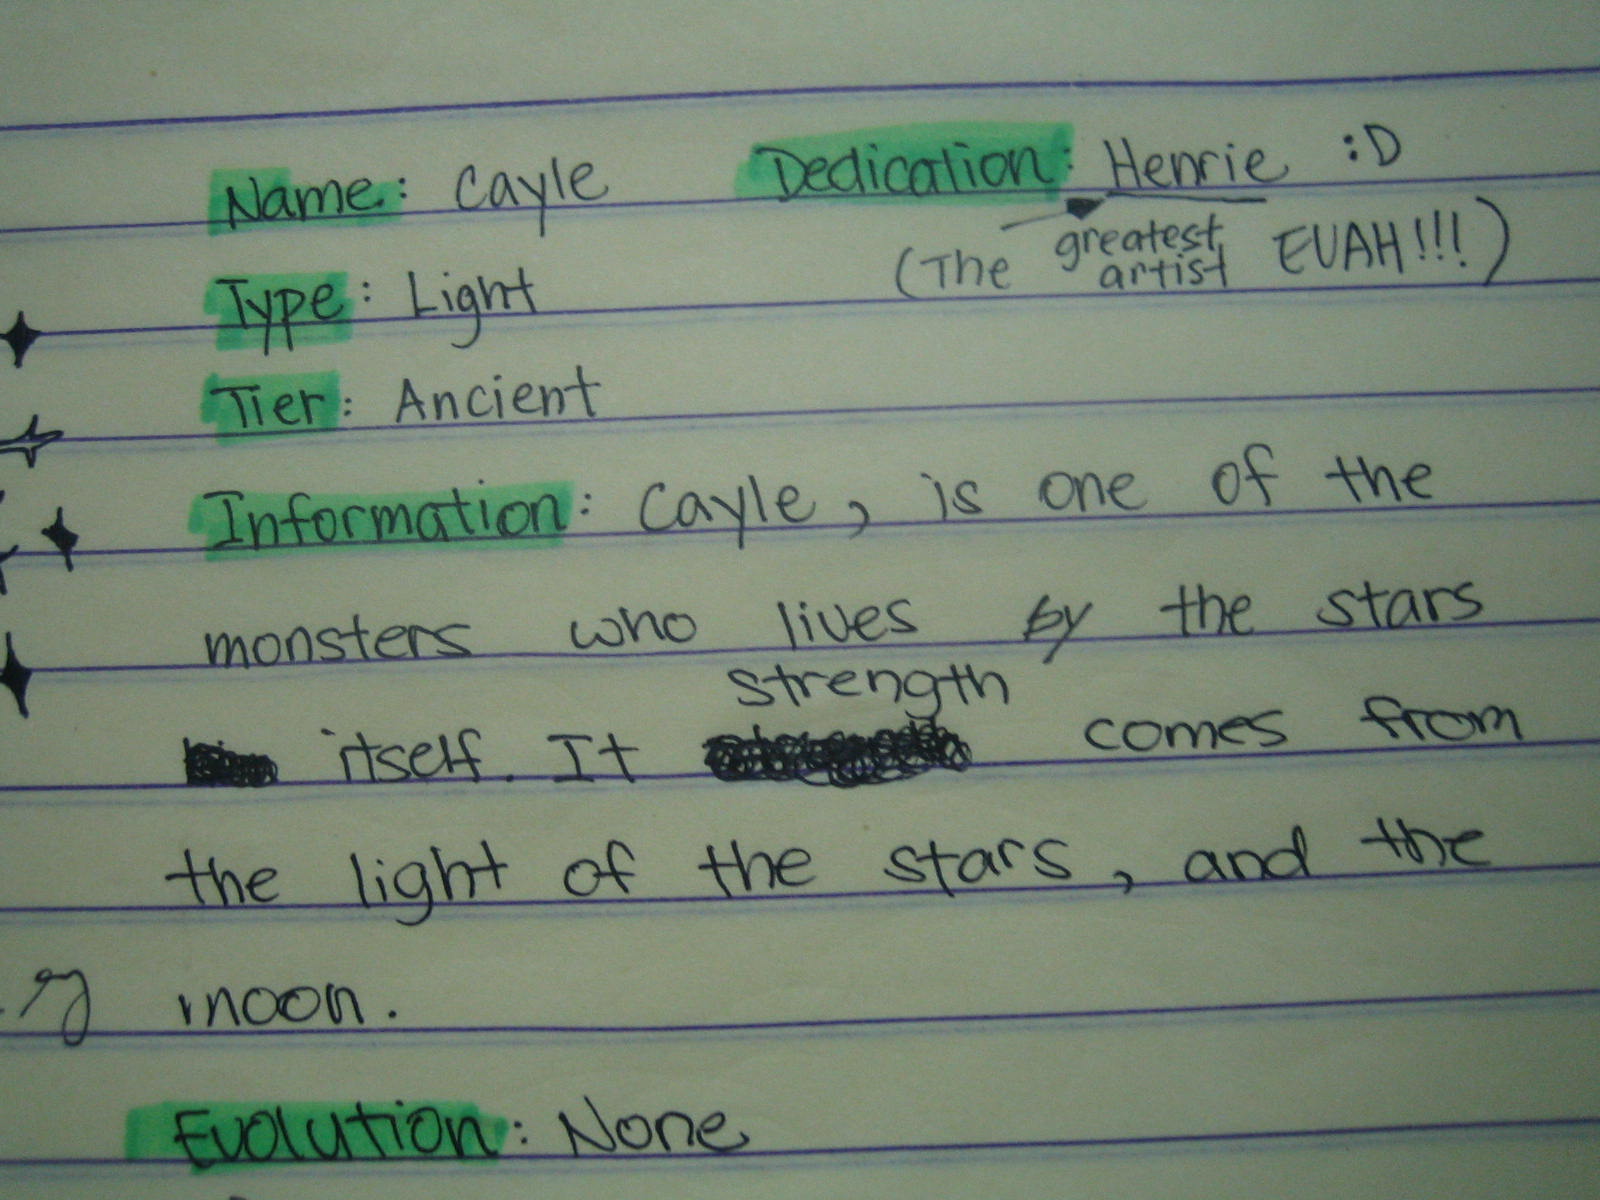 Name: Cayle Dedication: Henrie :D
(The greatest artist EUAH!!!)
Type: Light
Tier: Ancient
Information: Cayle, is one of the
monsters who lives by the stars
itself. It strength comes from
the light of the stars, and the
moon.
Evolution: None